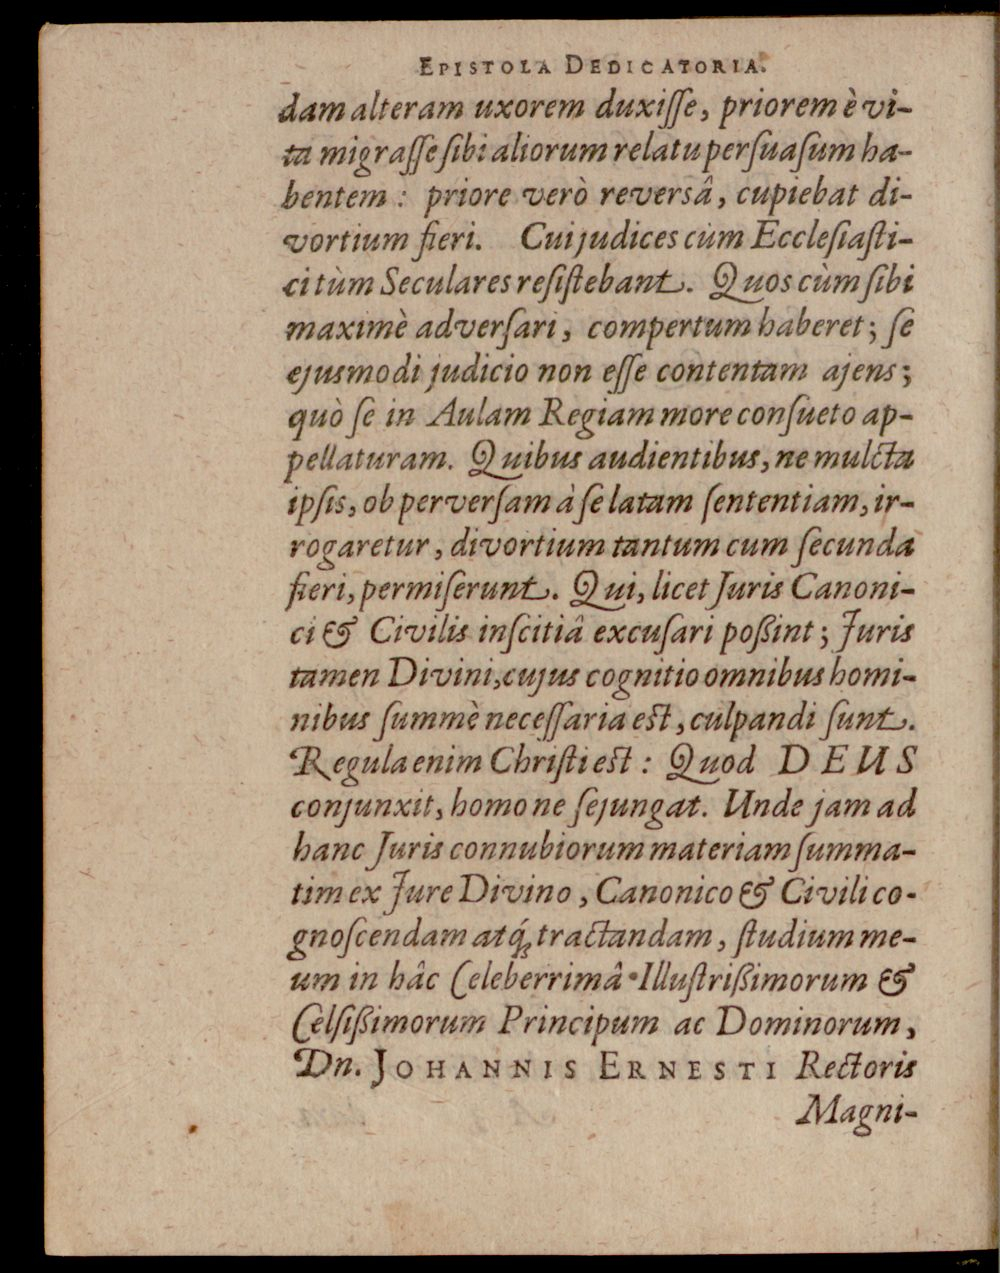 EPISTOLA DEDICATORIA.
dam alteram uxorem duxiſſe, priorem è vi-
ta migraſſe ſibi aliorum relatu perſuaſum ha-
bentem : priore verò reversâ, cupiebat di-
vortium fieri. Cui judices cùm Eccleſiaſti-
ci tùm Seculares reſiſtebant. Quos cùm ſibi
maximè adverſari, compertum haberet; ſe
ejusmodi judicio non eſſe contentam ajens;
quò ſe in Aulam Regiam more conſueto ap-
pellaturam. Quibus audientibus, ne mulcta
ipſis, ob perverſam à ſe latam ſententiam, ir-
rogaretur, divortium tantum cum ſecunda
fieri, permiſerunt. Qui, licet Juris Canoni-
ci & Civilis inſcitiâ excuſari poßint; Juris
tamen Divini, cujus cognitio omnibus homi-
nibus ſummè neceſſaria est, culpandi ſunt.
Regula enim Chriſti est : Quod DEUS
conjunxit, homo ne ſejungat. Unde jam ad
hanc Juris connubiorum materiam ſumma-
tim ex Jure Divino, Canonico & Civili co-
gnoſcendam atq́ꝫ tractandam, ſtudium me-
um in hâc Celeberrimâ Illuſtrißimorum &
Celſißimorum Principum ac Dominorum,
Dn. JOHANNIS ERNESTI Rectoris
Magni-